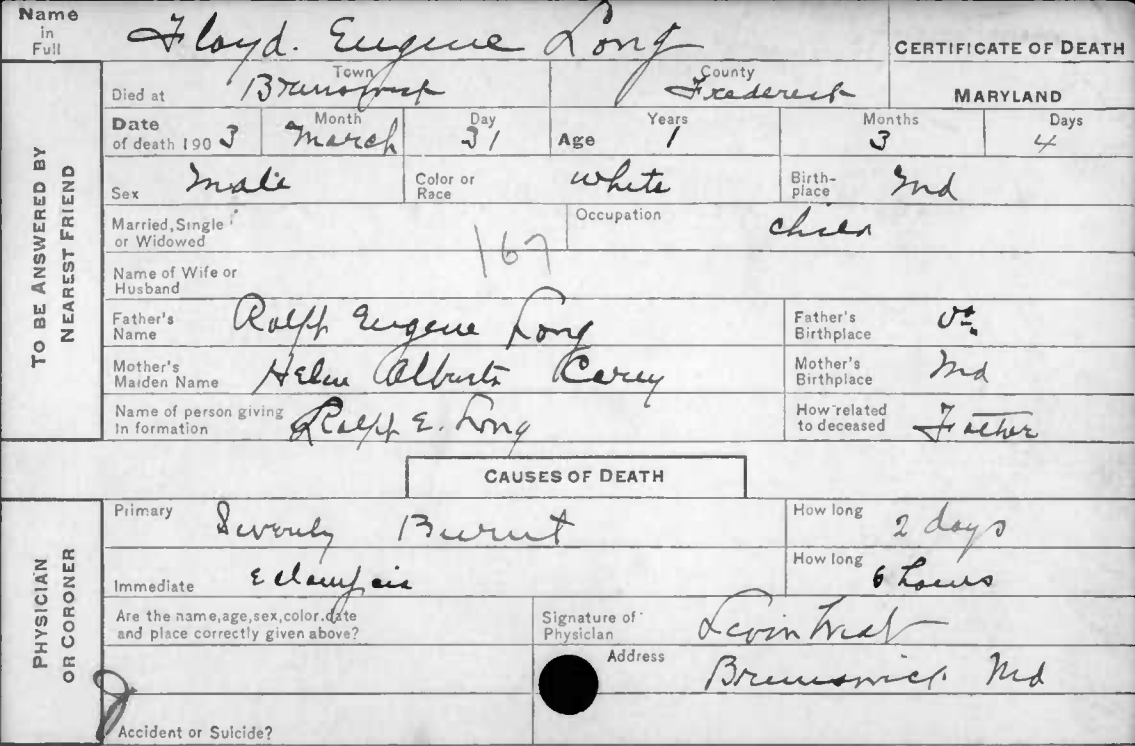 Name in Full Floyd. Eugene Long
CERTIFICATE OF DEATH
TO BE ANSWERED BY NEAREST FRIEND
Died at Town Brunswick County Frederick MARYLAND
Date of death 190 3 Month March Day 31 Age Years 1 Months 3 Days 4
Sex Male Color or Race White Birth-place Md
Married, Single or Widowed Occupation child
167
Name of Wife or Husband
Father's Name Ralph Eugene Long Father's Birthplace Va.
Mother's Maiden Name Helen Alberta Carey Mother's Birthplace Md
Name of person giving In formation Ralph E. Long How related to deceased Father
CAUSES OF DEATH
PHYSICIAN OR CORONER
Primary Severely Burnt How long 2 days
Immediate Eclampsia How long 6 hours
Are the name, age, sex, color, date and place correctly given above? Signature of Physician Levin West
Address Brunswick Md
Accident or Suicide?